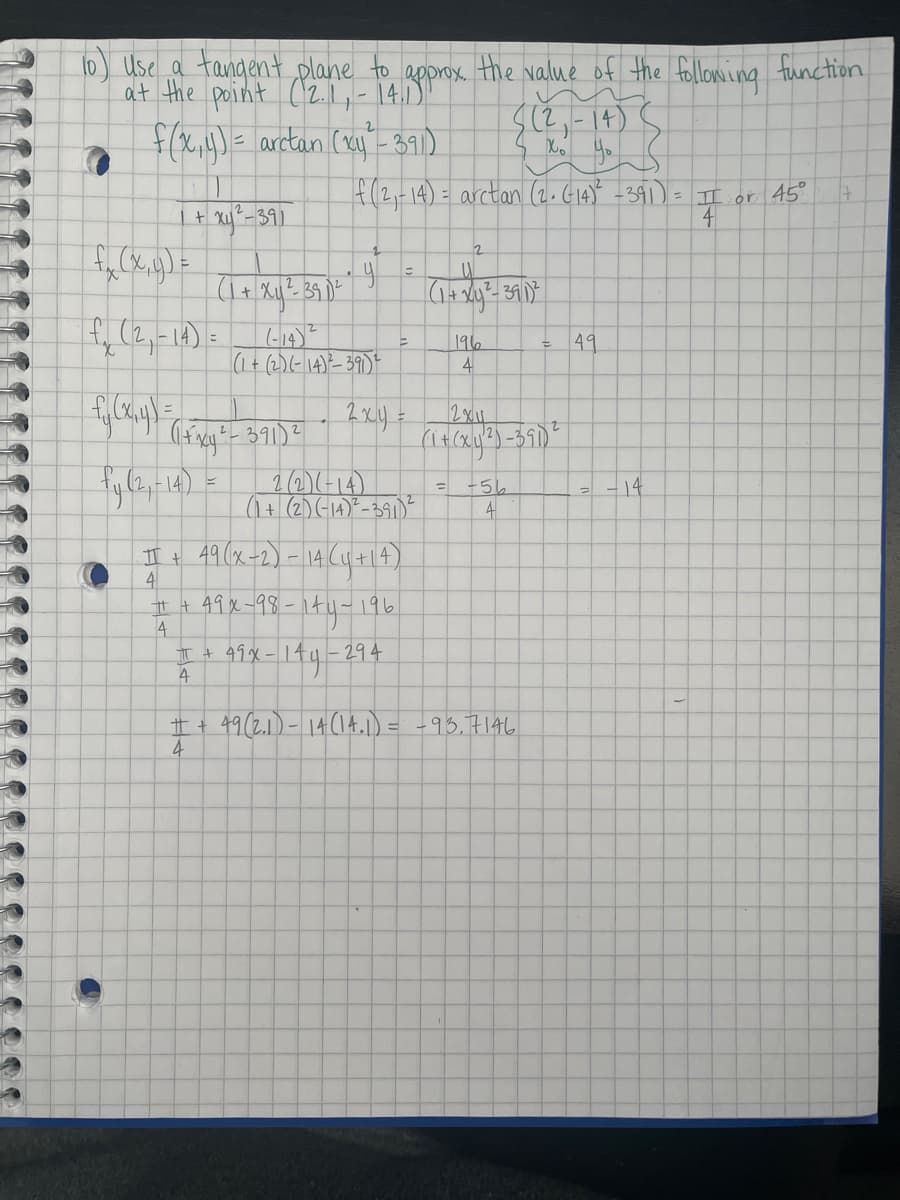 10) Use a tangent plane to approx. the value of the following function
at the point (2.1, -14.1)
{(2, -14)}
x₀ y₀
f(x,y) = arctan (xy² - 391)
f(2,-14) = arctan (2·(-14)² - 391) = π/4 or 45°
1/(1 + xy² - 391)
fₓ(x,y) = 1/(1 + xy² - 391)² · y² = y²/(1 + xy² - 391)²
fₓ(2,-14) = (-14)²/(1 + (2)(-14)² - 391)² = 196/4 = 49
f_y(x,y) = 1/(1 + xy² - 391)² · 2xy = 2xy/(1 + (xy²) - 391)²
f_y(2,-14) = 2(2)(-14)/(1 + (2)(-14)² - 391)² = -56/4 = -14
π/4 + 49(x-2) - 14(y+14)
π/4 + 49x - 98 - 14y - 196
π/4 + 49x - 14y - 294
π/4 + 49(2.1) - 14(14.1) = -93.7146